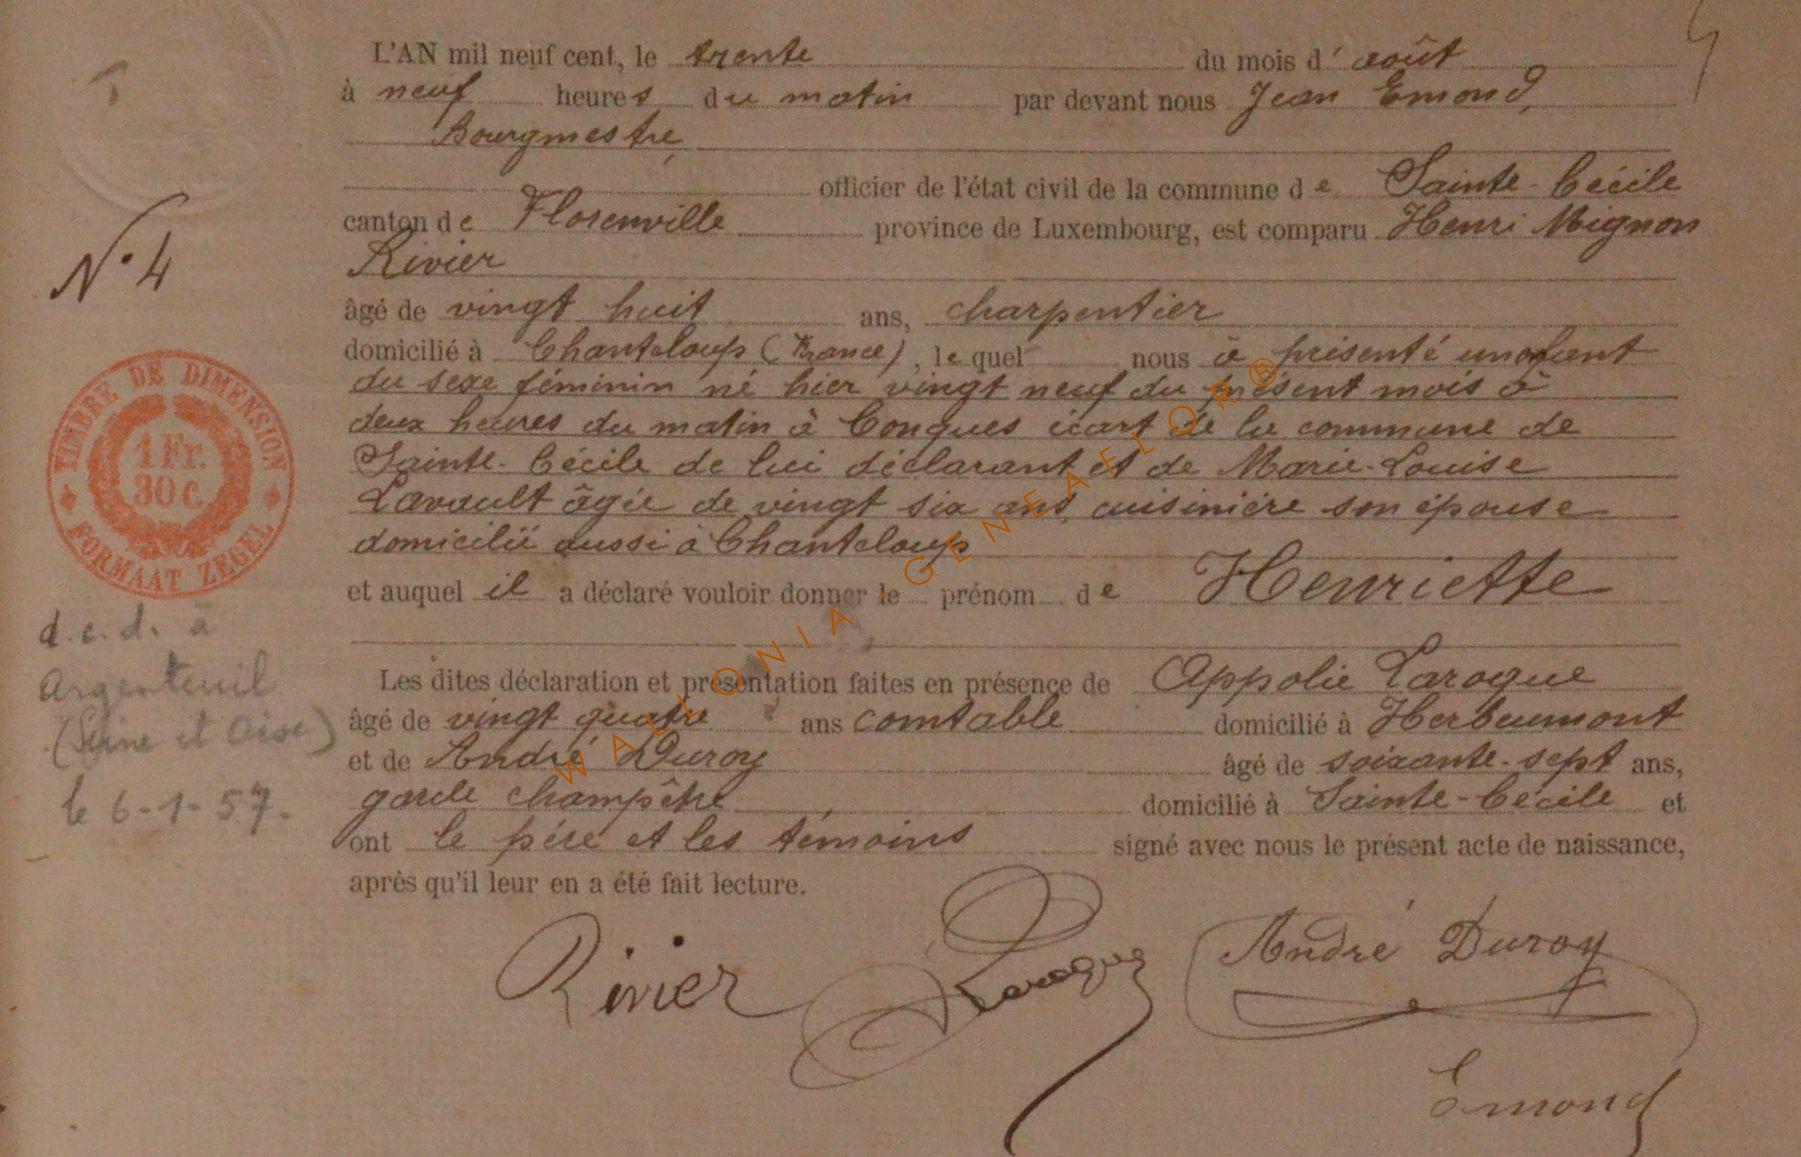 L'AN mil neuf cent, le trente du mois d' août
à neuf heures du matin par devant nous Jean Emond,
Bourgmestre,
officier de l'état civil de la commune de Sainte-Cécile
canton de Florenville province de Luxembourg, est comparu Henri Mignon
Rivier
âgé de vingt huit ans, charpentier
domicilié à Chanteloup (France), lequel nous a présenté un enfant
du sexe féminin né hier vingt neuf du présent mois à
deux heures du matin à Conques écart de la commune de
Sainte-Cécile de lui déclarant et de Marie-Louise
Lavault âgée de vingt six ans, cuisinière son épouse
domicilié aussi à Chanteloup
et auquel il a déclaré vouloir donner le prénom de Henriette
Les dites déclaration et présentation faites en présence de Appolie Laroque
âgé de vingt quatre ans comtable domicilié à Herbeumont
et de André Duroy âgé de soixante-sept ans,
garde champêtre domicilié à Sainte-Cécile et
ont le père et les témoins signé avec nous le présent acte de naissance,
après qu'il leur en a été fait lecture.
Rivier Laroque André Duroy
Emond
N° 4
TIMBRE DE DIMENSION
1 Fr.
30 C.
FORMAAT ZEGEL
d.c.d. à
Argenteuil
(Seine et Oise)
le 6-1-57.
WALLONIA GENEAFLOR®